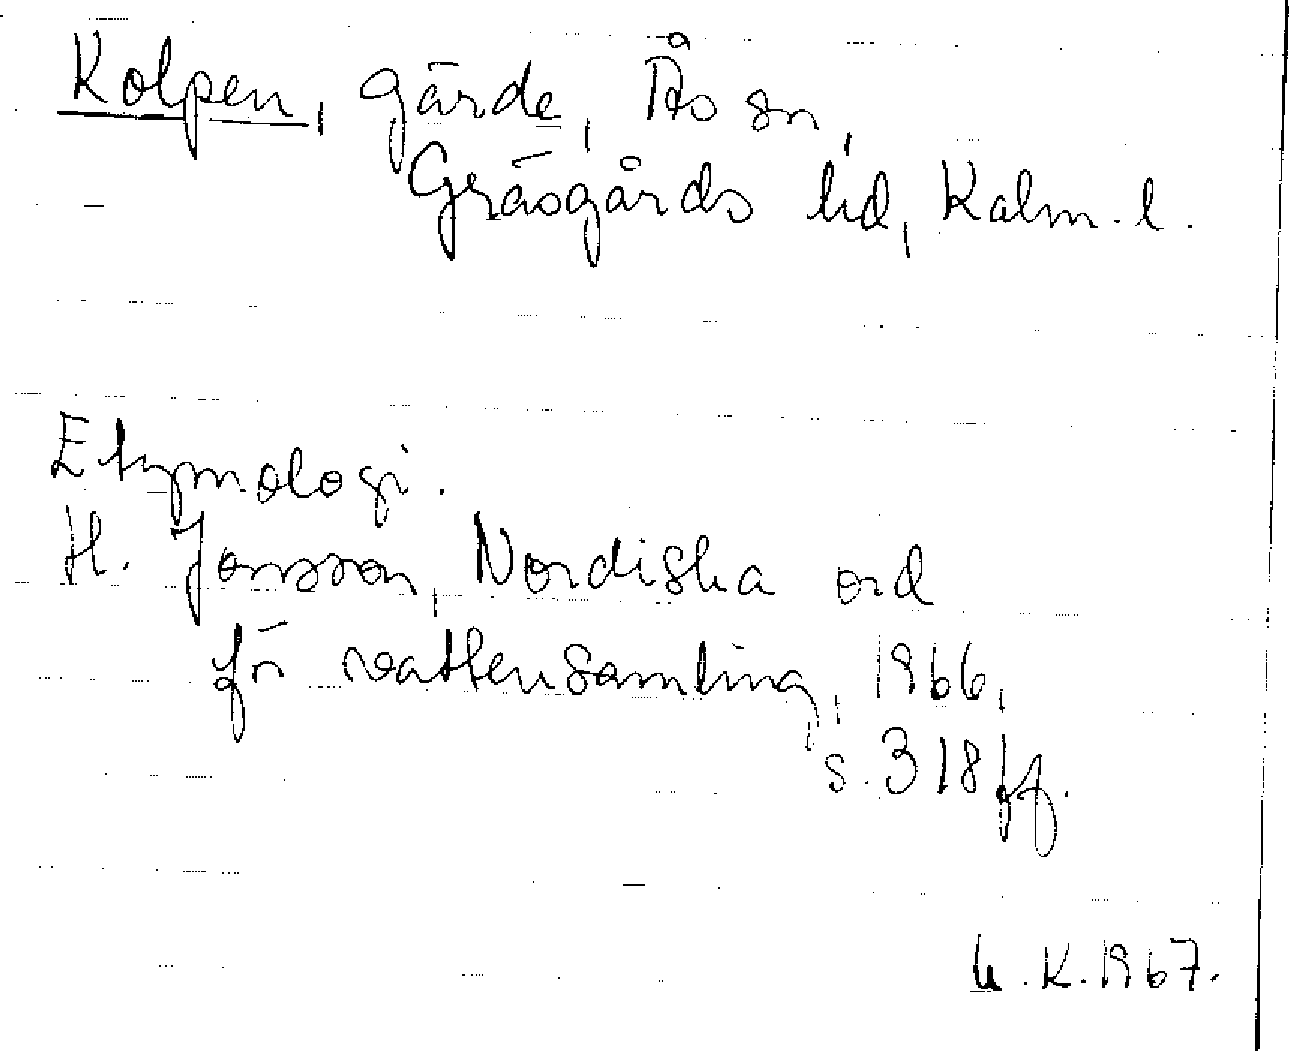 Kolpen, gärde, Ås sn,
Gräsgårds hd, Kalm. l.
Etymologi.
H. Jonsson, Nordiska ord
för vattensamling, 1966,
s. 318 ff.
U. K. 1967.